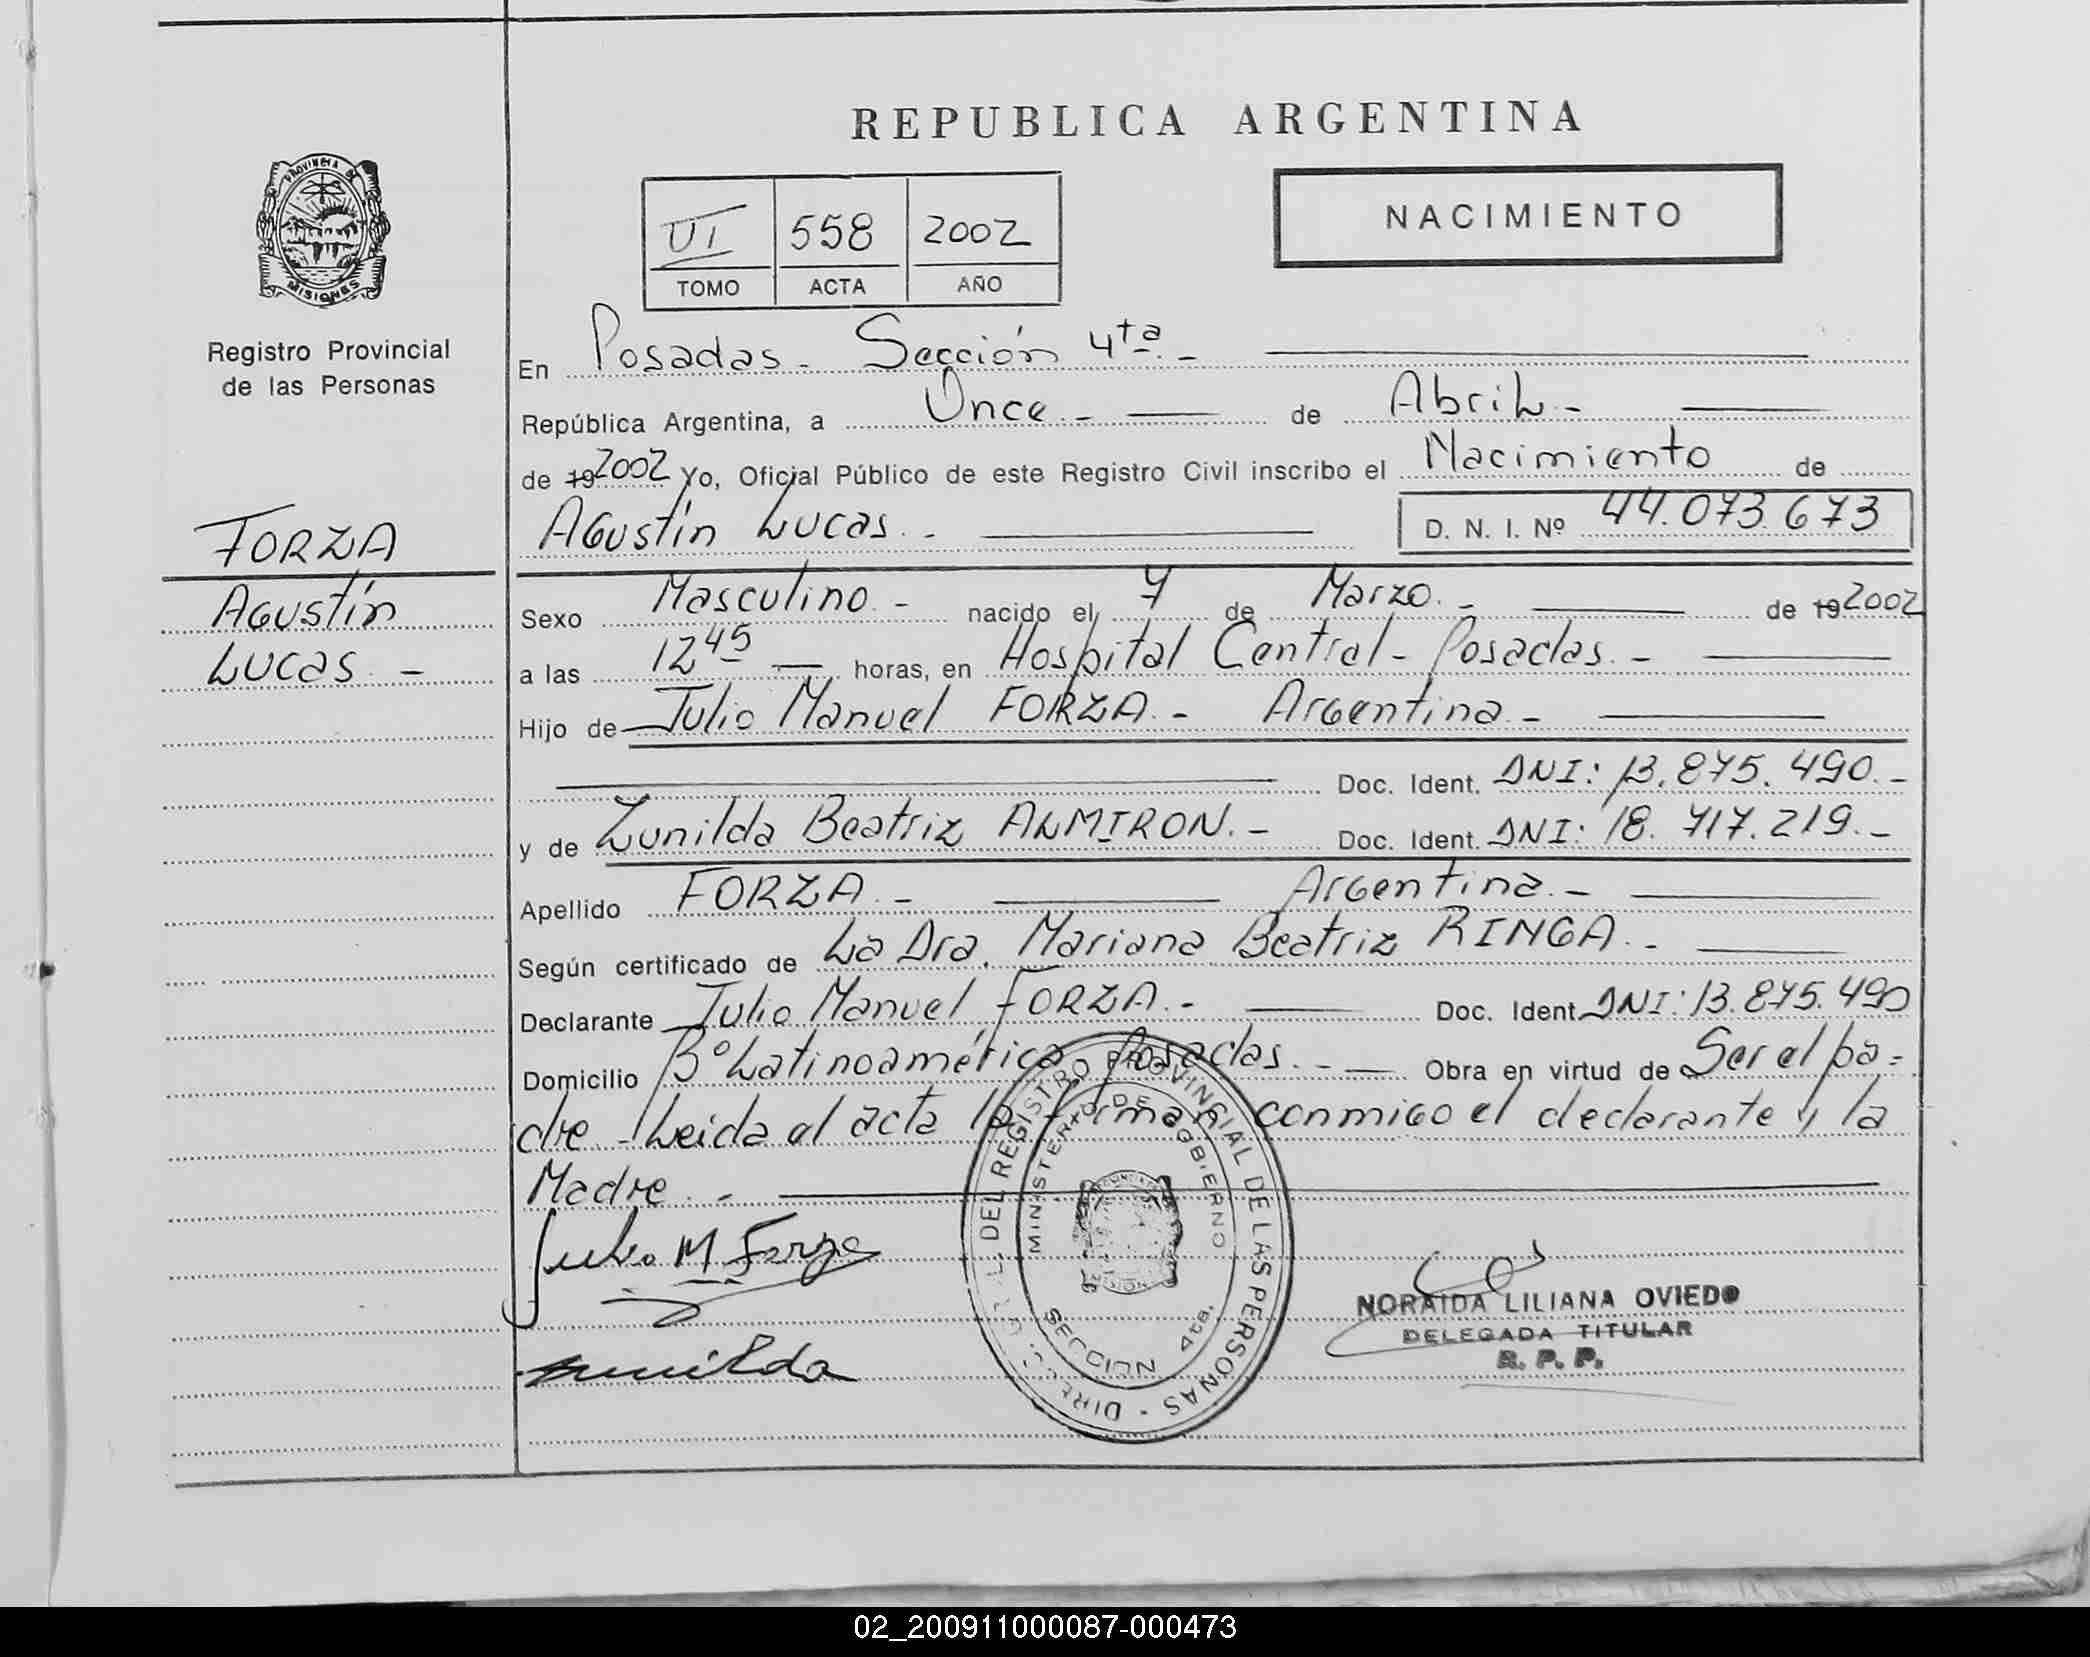 REPUBLICA ARGENTINA
PROVINCIA DE
MISIONES
Registro Provincial
de las Personas
VI 558 2002
TOMO ACTA AÑO
NACIMIENTO
En Posadas - Sección 4ta. -
República Argentina, a Once - de Abril -
de 19 2002 Yo, Oficial Público de este Registro Civil inscribo el Nacimiento de
Agustín Lucas. - D. N. I. Nº 44.073.673
FORZA
Agustín
Lucas. -
Sexo Masculino. - nacido el 7 de Marzo. - de 19 2002
a las 12 45 horas, en Hospital Central - Posadas. -
Hijo de Julio Manuel FORZA. - Argentina. -
Doc. Ident. DNI: 13.875.490. -
y de Zunilda Beatriz ALMIRON. - Doc. Ident. DNI: 18.717.219. -
Apellido FORZA. - Argentina. -
Según certificado de La Dra. Mariana Beatriz RINGA. -
Declarante Julio Manuel FORZA. - Doc. Ident. DNI: 13.875.490
Domicilio Bº Latinoamérica Posadas. - Obra en virtud de Ser el pa=
dre - Leida el acta la firman conmigo el declarante y la
Madre. -
Julio M Forza
DIRECC. DEL REGISTRO PROVINCIAL DE LAS PERSONAS -
MINISTERIO DE GOBIERNO
SECCION 4ta.
NORAIDA LILIANA OVIEDO
DELEGADA TITULAR
R. P. P.
02_200911000087-000473